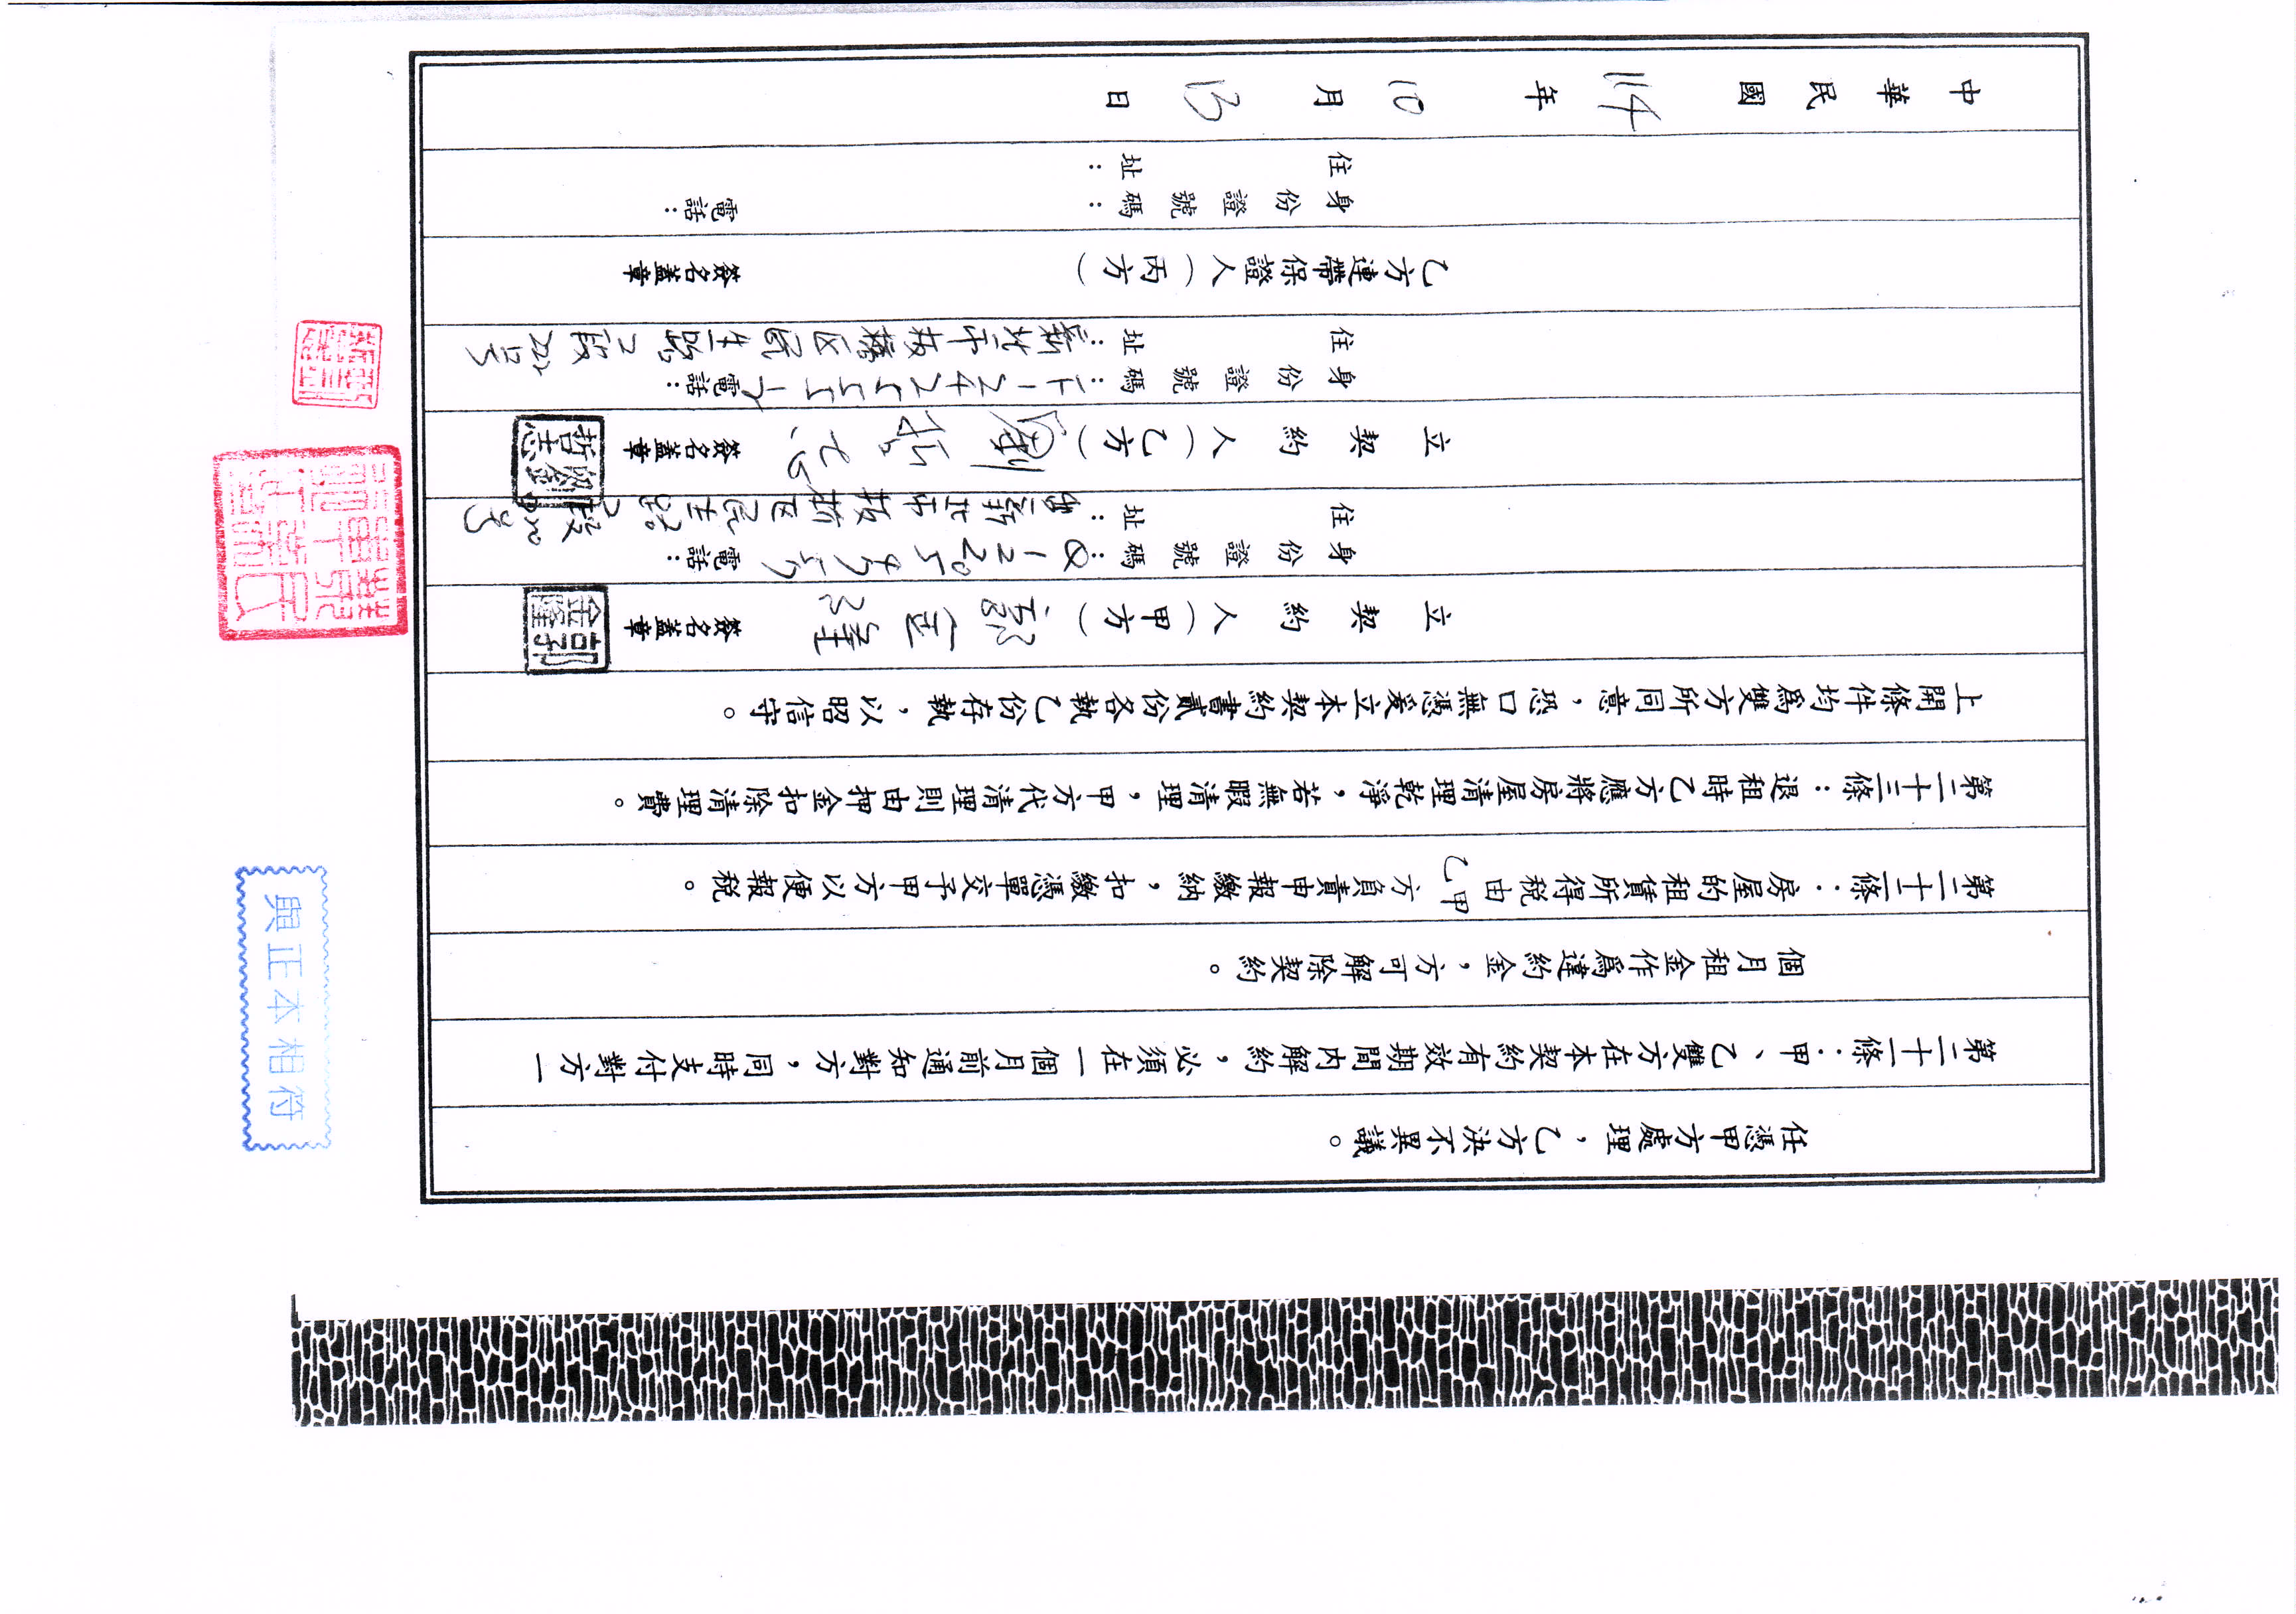 任憑甲方處理，乙方決不異議。
第二十一條：甲、乙雙方在本契約有效期間內解約，必須在一個月前通知對方，同時支付對方一
個月租金作為違約金，方可解除契約。
第二十二條：房屋的租賃所得稅由甲乙方負責申報繳納，扣繳憑單交予甲方以便報稅。
第二十三條：退租時乙方應將房屋清理乾淨，若無暇清理，甲方代清理則由押金扣除清理費。
上開條件均為雙方所同意，恐口無憑爰立本契約書貳份各執乙份存執，以昭信守。
立契約人（甲方） 郭金隆 簽名蓋章
郭金隆
身份證號碼： 電話：
住址：新北市板橋区民生路2段
立契約人（乙方） 劉哲志 簽名蓋章
劉哲志
身份證號碼： 電話：
住址：新北市板橋区民生路2段
乙方連帶保證人（丙方） 簽名蓋章
身份證號碼： 電話：
住址：
中華民國114年10月13日
與正本相符